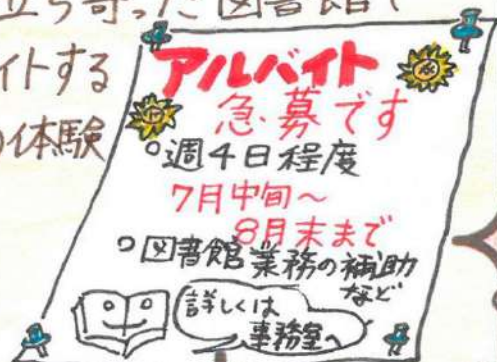 立ち寄った図書館で
イトする
体験
アルバイト
急募です
○週4日程度
7月中旬～
8月末まで
○図書館業務の補助
など
詳しくは
事務室へ